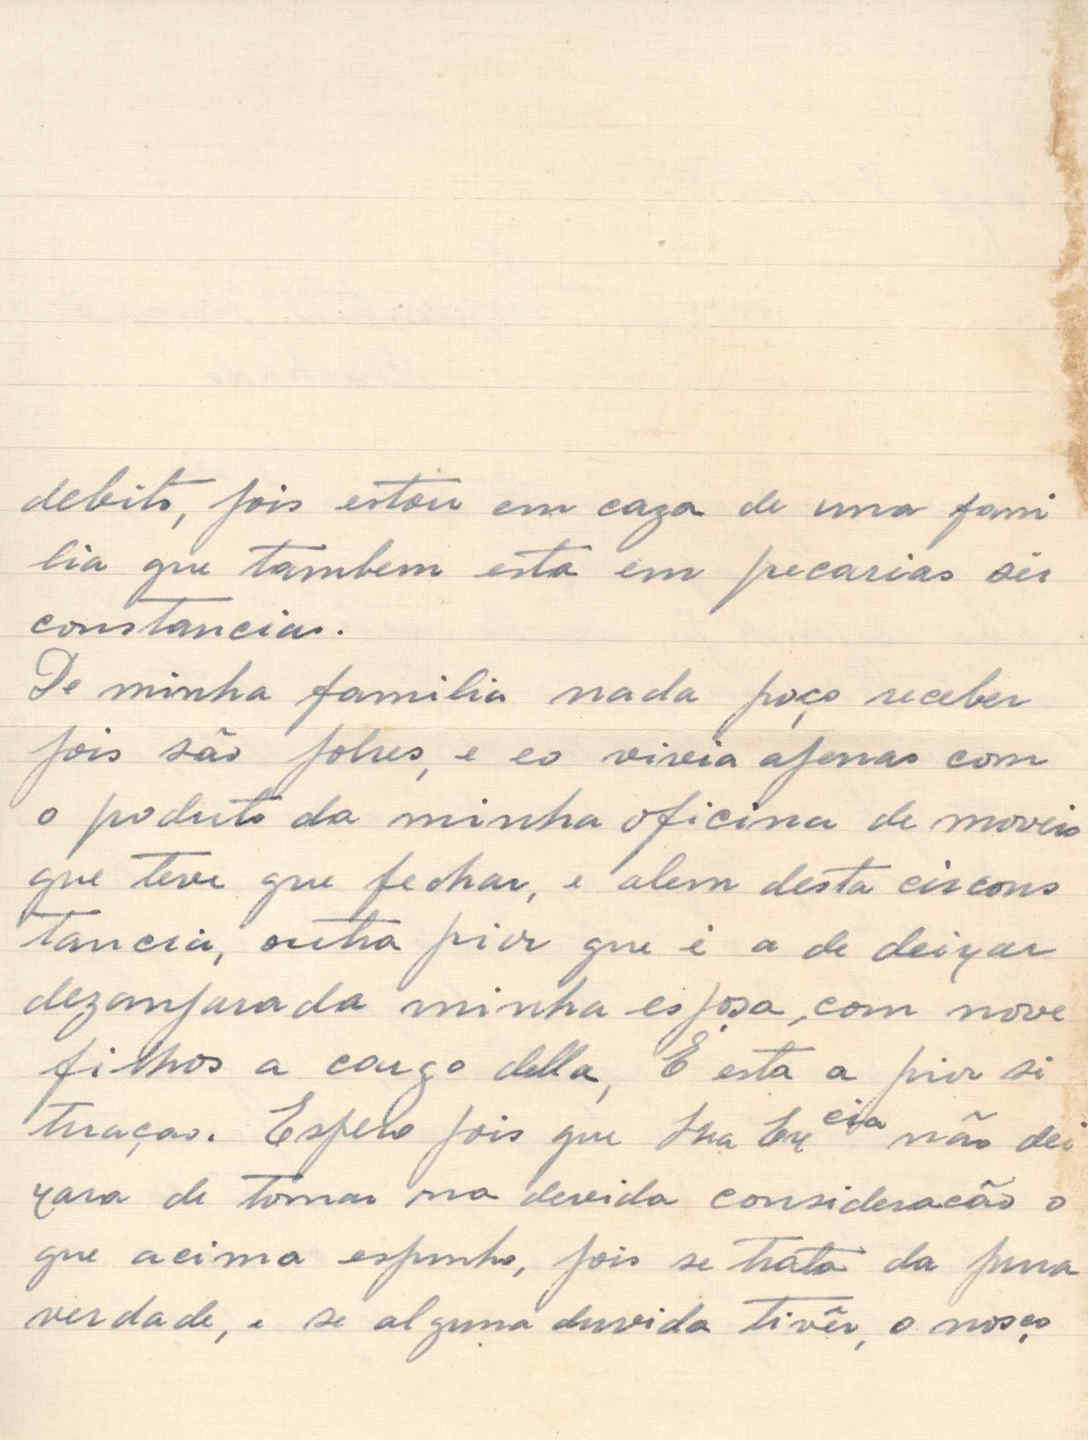 debito, pois estou em caza de uma fami
lia que tambem esta em pecarias sir
constancias.
De minha familia nada poço receber
pois são pobres, e eo vivia apenas com
o poduto da minha oficina de moveis
que teve que fechar, e alem desta circons
tancia, outra pior que é a de deixar
dezamparada minha espoṣa, com nove
filhos a cargo della, É esta a pior si
tuação. Espero pois que Sua Excia não dei
xara de tomar na devida consideracão o
que acima esponho, pois se trata da pura
verdade, e se alguma duvida tivêr, o nosço